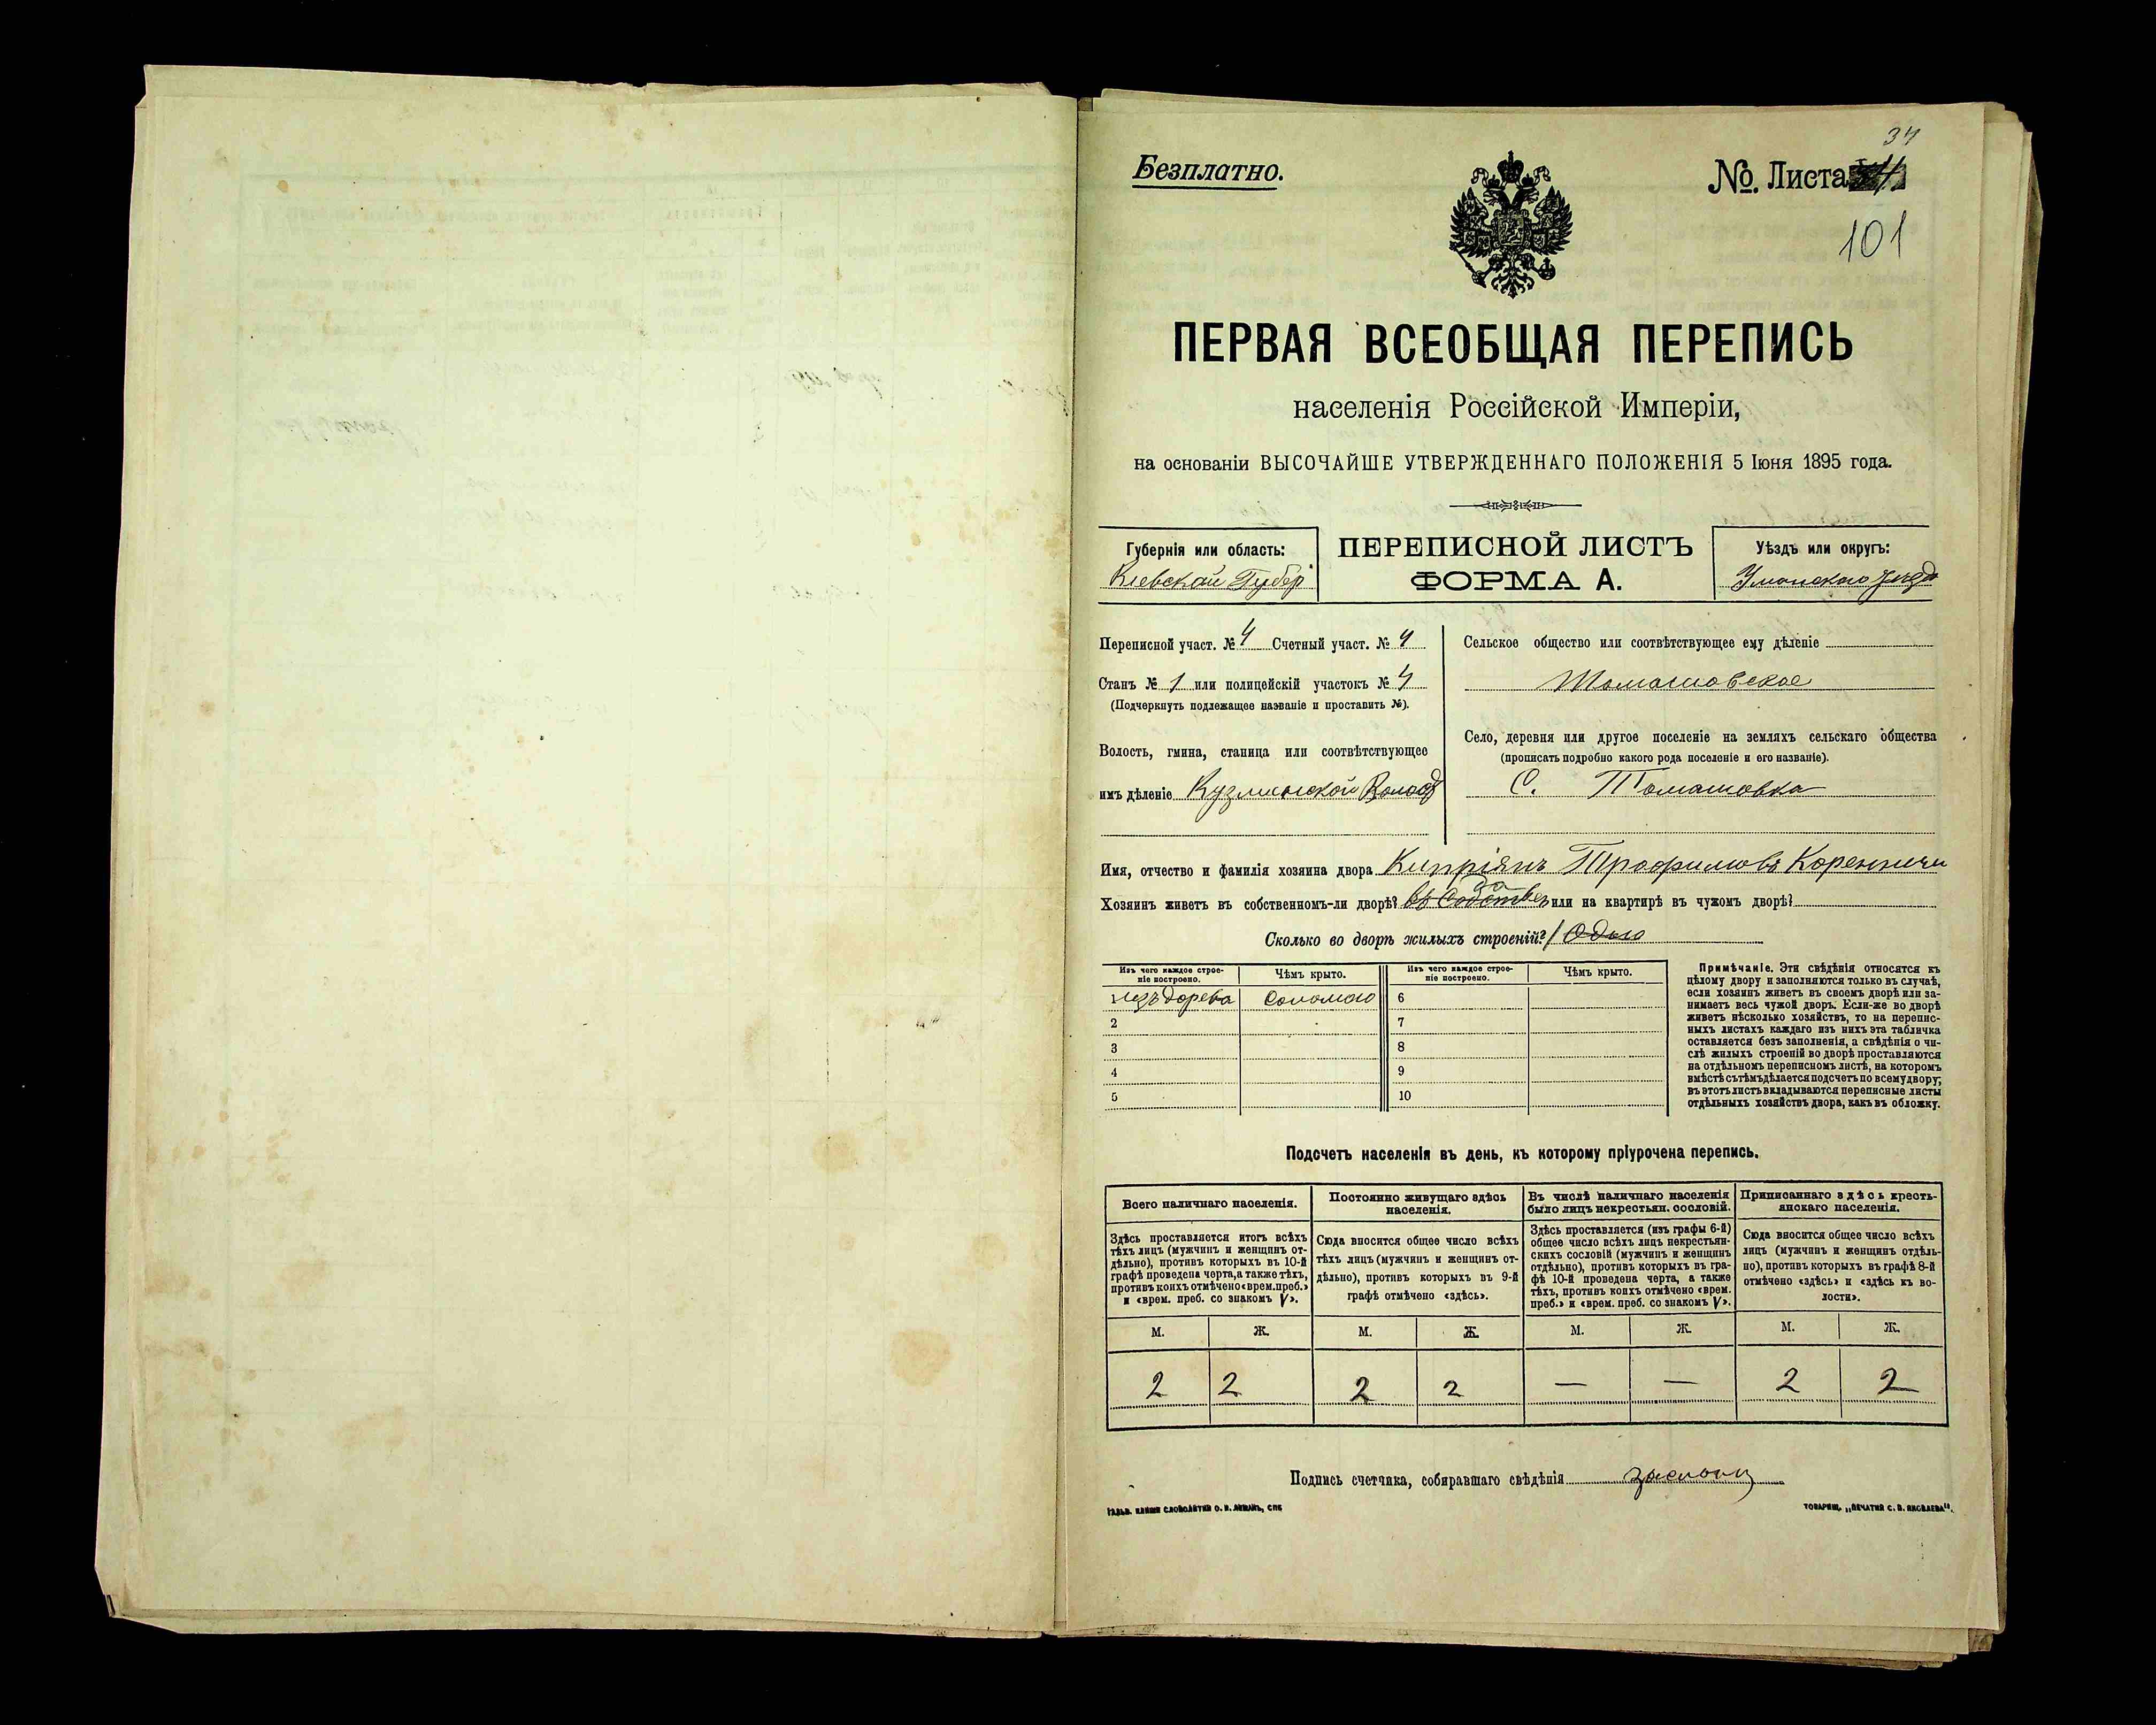 37
Безплатно.
№. Листа
101
ПЕРВАЯ ВСЕОБЩАЯ ПЕРЕПИСЬ
населенія Россійской Имперіи,
на основаніи ВЫСОЧАЙШЕ УТВЕРЖДЕННАГО ПОЛОЖЕНІЯ 5 Іюня 1895 года.
Губернія или область:
Кіевской Губер
ПЕРЕПИСНОЙ ЛИСТЪ
ФОРМА А.
Уѣздъ или округъ:
Уманскаго уѣзда
Переписной участ. № 4 Счетный участ. № 4
Станъ № 1 или полицейскій участокъ № 4
(Подчеркнуть подлежащее названіе и проставить №).
Волость, гмина, станица или соотвѣтствующее
имъ дѣленіе
Сельское общество или соотвѣтствующее ему дѣленіе
Томашовское
Село, деревня или другое поселеніе на земляхъ сельскаго общества
(прописать подробно какого рода поселеніе и его названіе).
С. Томашовка
Имя, отчество и фамилія хозяина двора Кипріянъ Трофимовъ
Хозяинъ живетъ въ собственномъ-ли дворѣ? да или на квартирѣ въ чужомъ дворѣ?
Сколько во дворѣ жилыхъ строеній? 1
Изъ чего каждое строе-
ніе построено.
Чѣмъ крыто.
Изъ чего каждое строе-
ніе построено.
Чѣмъ крыто.
1 изъ дорева Соломою 6
2 7
3 8
4 9
5 10
Примѣчаніе. Эти свѣдѣнія относятся къ
цѣлому двору и заполняются только въ случаѣ,
если хозяинъ живетъ въ своемъ дворѣ или за-
нимаетъ весь чужой дворъ. Если-же во дворѣ
живетъ нѣсколько хозяйствъ, то на перепис-
ныхъ листахъ каждаго изъ нихъ эта табличка
оставляется безъ заполненія, а свѣдѣнія о чи-
слѣ жилыхъ строеній во дворѣ проставляются
на отдѣльномъ переписномъ листѣ, на которомъ
вмѣстѣ съ тѣмъ дѣлается подсчетъ по всему двору;
въ этотъ листъ вкладываются переписные листы
отдѣльныхъ хозяйствъ двора, какъ въ обложку.
Подсчетъ населенія въ день, къ которому пріурочена перепись.
Всего наличнаго населенія.
Здѣсь проставляется итогъ всѣхъ
тѣхъ лицъ (мужчинъ и женщинъ от-
дѣльно), противъ которыхъ въ 10-й
графѣ проведена черта, а также тѣхъ,
противъ коихъ отмѣчено «врем. преб.»
и «врем. преб. со знакомъ V».
Постоянно живущаго здѣсь
населенія.
Сюда вносится общее число всѣхъ
тѣхъ лицъ (мужчинъ и женщинъ от-
дѣльно), противъ которыхъ въ 9-й
графѣ отмѣчено «здѣсь».
Въ числѣ наличнаго населенія
было лицъ некрестьян. сословій.
Здѣсь проставляется (изъ графы 6-й)
общее число всѣхъ лицъ некрестьян-
скихъ сословій (мужчинъ и женщинъ
отдѣльно), противъ которыхъ въ гра-
фѣ 10-й проведена черта, а также
тѣхъ, противъ коихъ отмѣчено «врем.
преб.» и «врем. преб. со знакомъ V».
Приписаннаго здѣсь кресть-
янскаго населенія.
Сюда вносится общее число всѣхъ
лицъ (мужчинъ и женщинъ отдѣль-
но), противъ которыхъ въ графѣ 8-й
отмѣчено «здѣсь» и «здѣсь къ во-
лости».
М. Ж. М. Ж. М. Ж. М. Ж.
2 2 2 2 — — 2 2
Подпись счетчика, собиравшаго свѣдѣнія
ГАЛЬВ. КЛИШЕ СЛОВОЛИТНИ О. И. ЛЕМАНЪ, СПБ
ТОВАРИЩ. „ПЕЧАТНЯ С. П. ЯКОВЛЕВА".